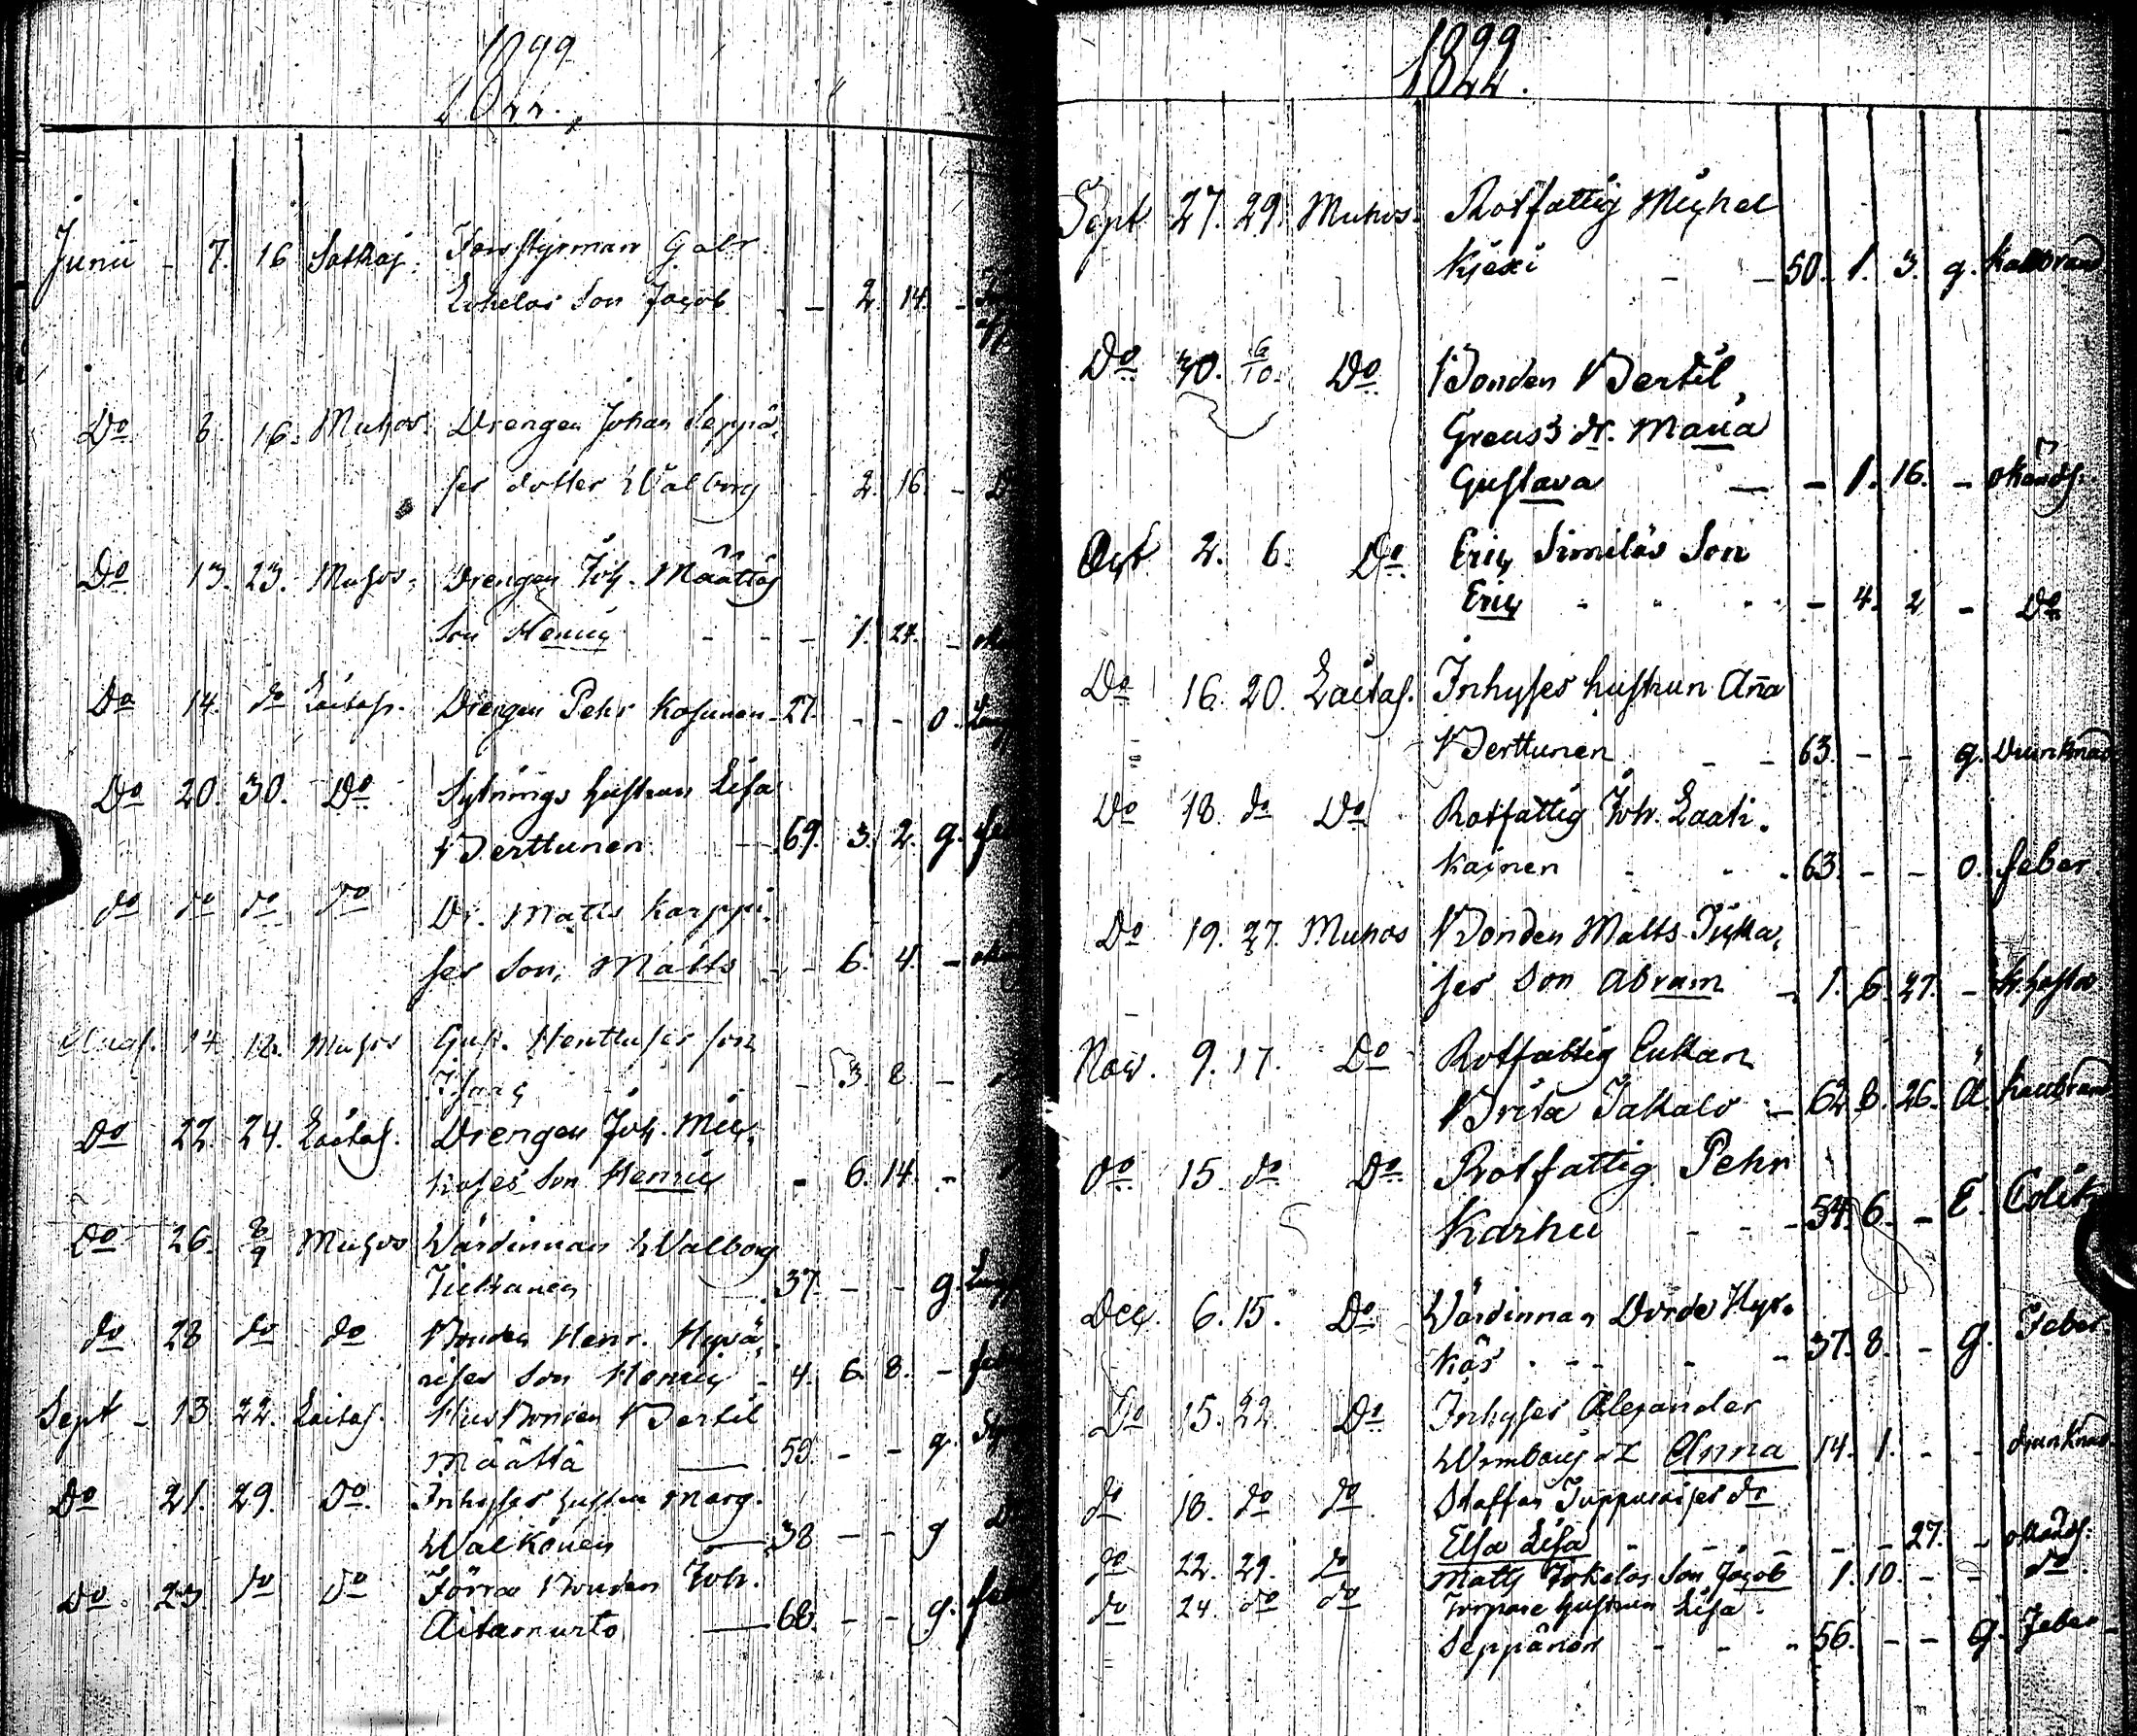 1822.
Junii - 7. 16 Sotkaj. Torpstyrman Gabr.
Lokelas Son Jacob - 2. 14. -
Do 8. 16. Muhos. Drengen Johan Seppä,
ses dotter Walborg - 2. 16. - D
Do 13. 23. Muhos. Drengen Joh. Määttäs
Son Henric - - - 1. 24. -
Do 14. do Laitas. Drengen Pehr Kosunen - 27. - - o.
Do 20. 30. Do Sytnings hustrun Lisa
Berttunen - 69. 3. 2. g.
do do do do Dr. Matts Karppi,
ses Son, Matts - - 6. 4. -
Aug. 17. 18. Muhos Gust. Henttuses son
Isaac - 3. 8. -
Do 22. 24. Laitas. Drengen Joh. Mic,
koses Son Henric - 6. 14. -
Do 26. 8/9 Muhos Wärdinnan Walborg
Tickanen 37. - - g.
do 28 do do Bonden Henr. Hyvä,
rises Son Henric - 4. 6. 8. -
Sept - 13. 22. Laitas. Husbonden Bertil
Määttä - 59. - - g.
Do 21. 29. Do. Inhyses hustru Marg.
Walkonen - 38 - - g D
Do. 23. do Do Förra Bonden Joh.
Aitamurto - 68. - - g.
1822.
Sept 27. 29. Muhos. Rotfattig Michel
Kjexi - - 50. 1. 3. g. Kallbrand
Do 30. 6/10. Do Bonden Bertil
Greuss dr. Maria
Gustava - - 1. 16. - okänds.
Oct 2. 6. Do. Eric Similäs Son
Eric - - - - 4. 2 - Do
Do 16. 20. Laitas. Inhyses hustrun Ana
Berttunen - - 63. - - g. Drunknad
Do 18. do Do Rotfattig Joh. Laati,
kainen - - - 63. - - o. feber.
Do 19. 27. Muhos Bonden Matts Ticka,
ses Son Abram - 1. 6. 27. - k.hosta
Nov. 9. 17. Do Rotfattig Enkan
Brita Jakalo - 62. 8. 26. Ä. kallbrand
do 15. do Do Rotfattig Pehr
Karhu - - - 54. 6. - E. Colik
Dec. 6. 15. Do Wärdinnan Dorde Hyr,
käs - - - - 37. 8. - g. Feber.
Do 15. 22. Do Inhyses Alexander
Wrmbous dr Anna 14. 1. - - drunknad
do 18. do do Staffan Juppuraises dr
Elsa Lisa - - - - 27. - okänds.
do 22. 29. do Matts Jokelas Son Jacob 1. 10. - - do
do 24. do do Torpare hustrun Lisa
Seppänen - - - 56. - - g. Feber